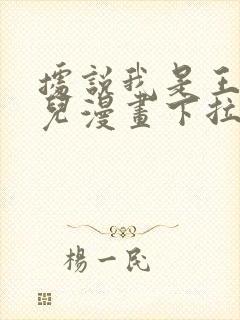 據說我是王
兒漫畫下拉
楊一民